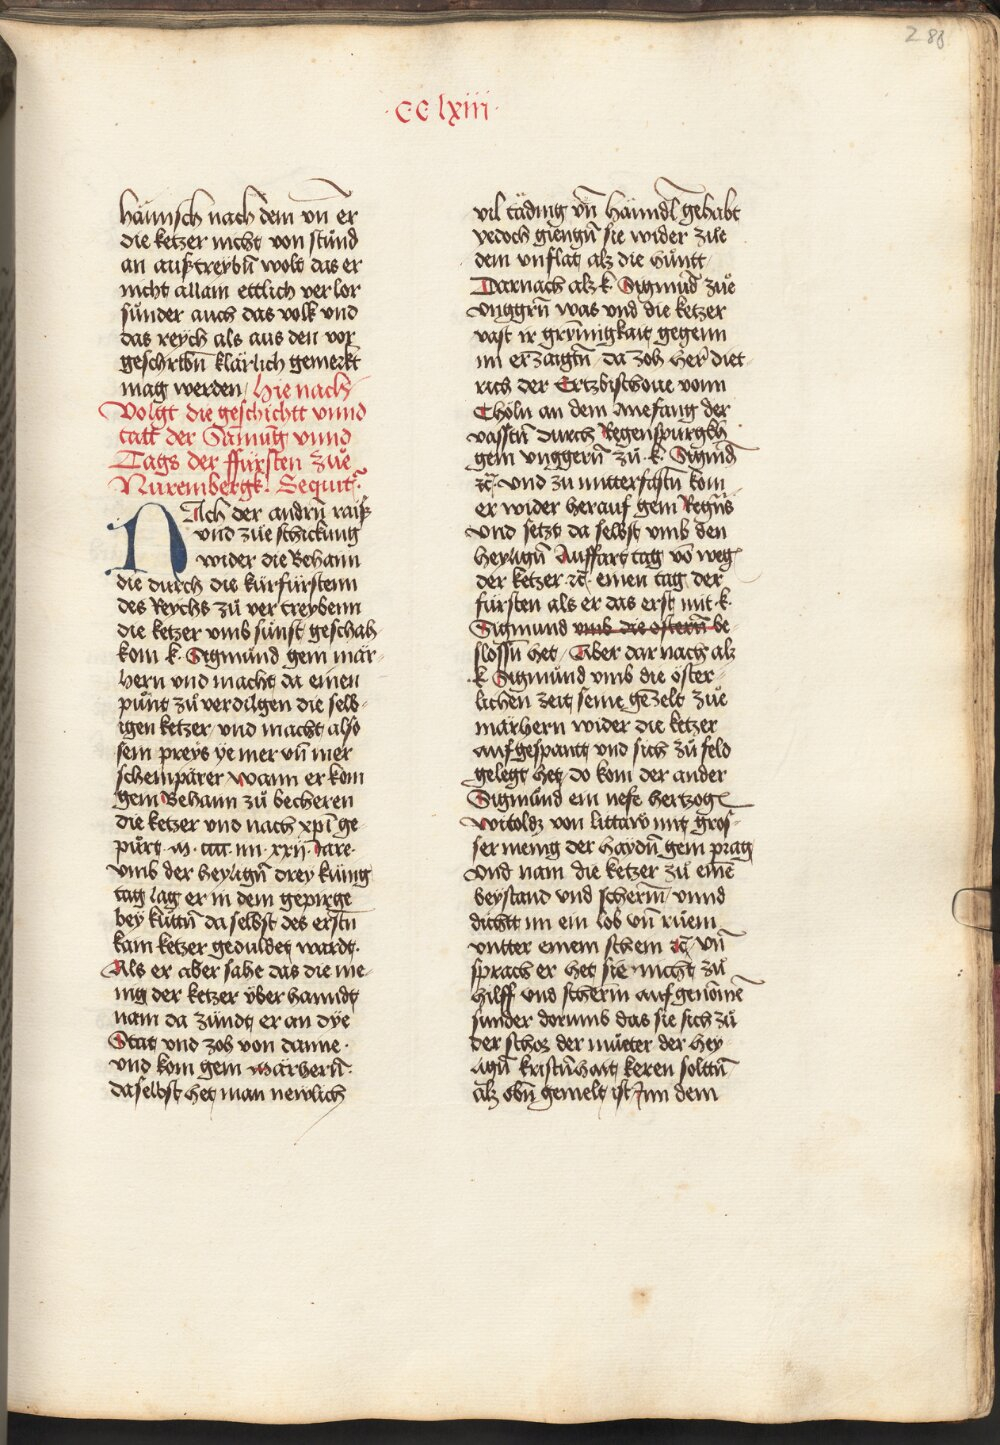 288
·CC lxiii·
häimisch nach dem vn̄ er
die ketzer nicht von stůnd
an auſztreybn̄ wolt das er
nicht allain ettlich ver lor
sůnder auch das volk vnd
das reych als aus den vor
geschribn̄ klärlich gemerkt
mag werden / Hie nach
Volgt die geschichtt vnnd
tatt der Sāmūg vnnd
Tags der ffürsten zůe
Nůrembergk. Sequit᷑.
NAch der andrn̄ raiſz
vnd zůe schickung
wider die Behann
die durch die kürfürstenn
des Reychs zů ver treybenn
die ketzer vmb sůnst geschah
kom k. Sigmůnd gem mär-
hern vnd macht da einen
půnt zů verdilgen die selb-
igen ketzer vnd macht also
sein preys ye mer vn̄ mer
scheinpärer wann er kom
gem Behann zů becheren
die ketzer vnd nach xpī ge-
půrt · m · cccc · xxii · Jare ·
vmb der heylign̄ drey künig
tag lag er in dem gepirge
bey kůttn̄ da selbst des erstn̄
kain ketzer geduldet wardt.
Als er aber sahe das die me-
nig der ketzer über hanndt
nam da zündt er an dye
Stat vnd zoh von danne ·
vnd kom gem märhern̄ ·
daselbst het man newlich
vil täding vn̄ Hänndl gehabt
yedoch giengn̄ sie wider zůe
dem vnflat alz die hůntt
Darnach alz k. Sigmūd zůe
vnggrn̄ was vnd die ketzer
vast ir grÿmigkait gegenn
im erzaigtn̄ da zoh her diet-
rich der Ertzbischoue vonn
Chöln an dem Anefang der
vasstn̄ durch Regenspurgkh
gem vnggern̄ zů k. Sigmūd
zc̄. vnd zu mitterfastn̄ kom
er wider herauf gem Regn̄s
vnd setzt da selbst vmb den
heylign̄ Auffart tag vō weg
der ketzer zc̄. einen tag der
fürsten als er das erst mit k.
Sigmund vmb die ostern̄ be-
slossn̄ het / Aber dar nach alz
k Sigmůnd vmb die öster-
lichen zeit seine gezelt zůe
märhern wider die ketzer
aufgespantt vnd sich zů feld
gelegt het do kom der ander
Sigmůnd ein nefe hertzog
witoldz von littaw mit gros-
ser menig der haydn̄ gem prag
vnd nam die ketzer zů einē
beystand vnd scherm vnnd
dichtt im ein lob vn̄ růem
vntter einem schein zc̄ vn̄
sprach er het sie nicht zů
hilff vnd scherm aufgenomē
sunder dorumb das sie sich zů
der schos der můeter der hey-
lign̄ kristn̄hait keren soltn̄
alz obn̄ gemelt ist Jnn dem